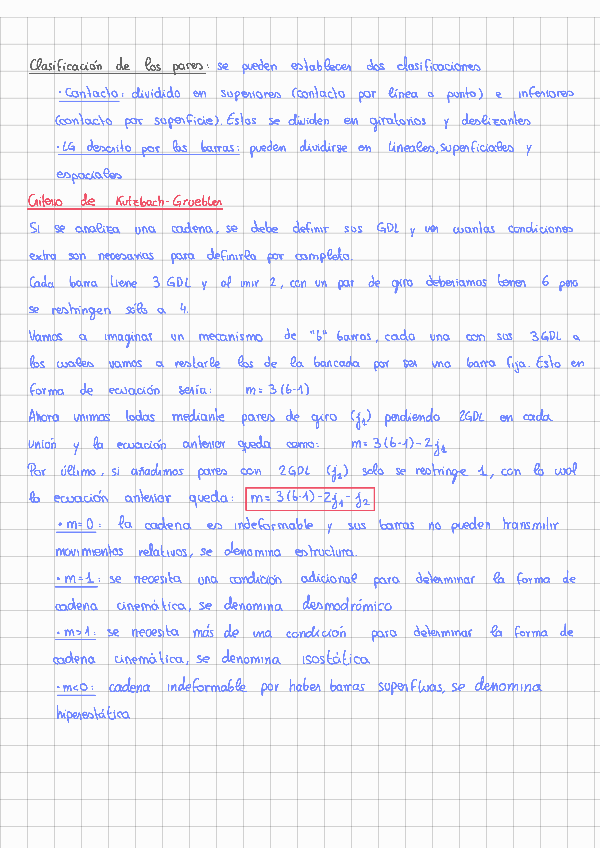 Clasificación de los pares: se pueden establecer dos clasificaciones
· Contacto: dividido en superiores (contacto por línea o punto) e inferiores
(contacto por superficie). Estos se dividen en giratorios y deslizantes
· LG descrito por las barras: pueden dividirse en lineales, superficiales y
espaciales
Criterio de Kutzbach-Gruebler
Si se analiza una cadena, se debe definir sus GDL y ver cuantas condiciones
extra son necesarias para definirla por completo.
Cada barra tiene 3 GDL y al unir 2, con un par de giro deberíamos tener 6 pero
se restringen sólo a 4.
Vamos a imaginar un mecanismo de "b" barras, cada una con sus 3GDL a
los cuales vamos a restarle los de la bancada por ser una barra fija. Esto en
forma de ecuación sería: m= 3(b-1)
Ahora unimos todas mediante pares de giro (j₁) perdiendo 2GDL en cada
unión y la ecuación anterior queda como: m= 3(b-1)-2j₁
Por último, si añadimos pares con 2GDL (j₂) solo se restringe 1, con lo cual
la ecuación anterior queda: m= 3(b-1)-2j₁-j₂
· m=0: la cadena es indeformable y sus barras no pueden transmitir
movimientos relativos, se denomina estructura.
· m=1: se necesita una condición adicional para determinar la forma de
cadena cinemática, se denomina desmodrómico
· m>1: se necesita más de una condición para determinar la forma de
cadena cinemática, se denomina isostática
· m<0: cadena indeformable por haber barras superfluas, se denomina
hiperestática